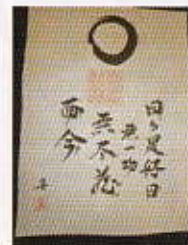 日々是好日
無一物
無尽蔵
而今